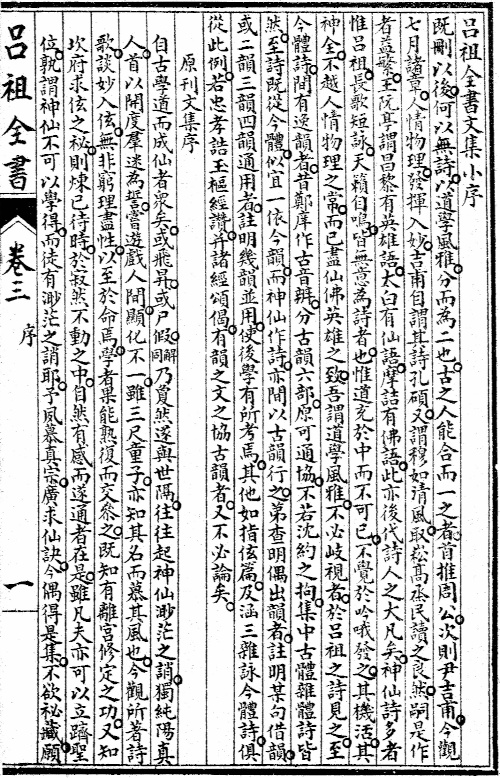 呂祖全書文集小序
既刪以後何以無詩以道學風雅分而為二也古之人能合而一之者首推周公次則尹吉甫今觀
七月諸章人情物理發揮入妙吉甫自謂其詩孔碩又謂穆如清風取崧高烝民讀之良然嗣是作
者益繁王阮亭謂昌黎有英雄語太白有仙語摩詰有佛語此亦後代詩人之大凡矣神仙詩多者
惟呂祖長歌短詠天籟自鳴皆無意為詩者也惟道充於中而不可已不覺於吟哦發之其機活其
神全不越人情物理之常而已盡仙佛英雄之致吾謂道學風雅不必歧視者於呂祖之詩見之至
今體詩間有逸韻者昔鄭庠作古音辨分古韻六部原可通協不若沈約之拘集中古體雜體詩皆
然至詩既從今體似宜一依今韻而神仙作詩亦間以古韻行之第查明偶出韻者註明某句借韻
或二韻三韻四韻通用者註明幾韻並用使後學有所考焉其他如指伭篇及涵三雜詠今體詩俱
從此例若忠孝誥玉樞經讚并諸經頌偈有韻之文之協古韻者又不必論矣
原刊文集序
自古學道而成仙者衆矣或飛昇或尸假同解乃莫然遂與世隔往往起神仙渺茫之誚獨純陽真
人首以開度羣迷為誓嘗遊戲人間顯化不一雖三尺童子亦知其名而慕其風也今觀所著詩
歌談妙入伭無非窮理盡性以至於命焉學者果能熟復而交參之既知有離宮修定之功又知
坎府求伭之秘則煉已待時於寂然不動之中自然有感而遂通者在是雖凡夫亦可以立躋聖
位孰謂神仙不可以學得而徒有渺茫之誚耶予夙慕真宗廣求仙訣今偶得是集不欲祕藏願
呂祖全書
卷三
序
一